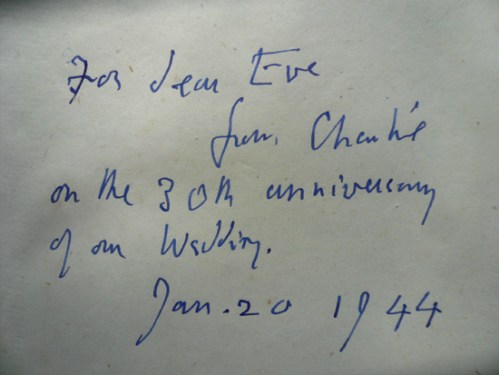 For dear Eve
from Charlie
on the 30th anniversary
of our Wedding.
Jan. 20 1944